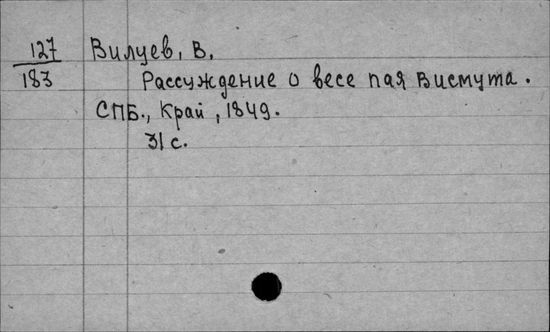 127 Вилуев, В.
183 Рассуждение о весе пая висмута.
СПБ., Край, 1849.
31 с.